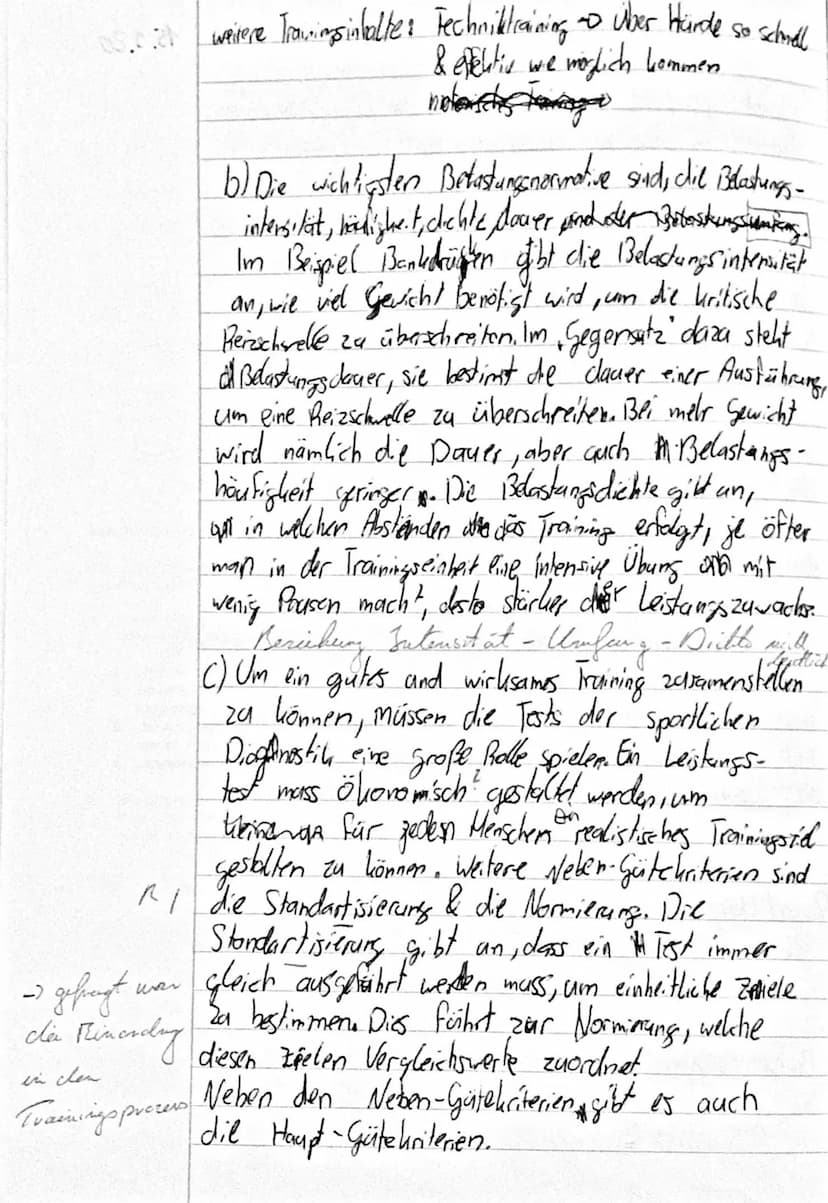 weitere Trainingsinhalte: Techniktraining → Über Hürde so schnell
& effektiv wie möglich kommen
b) Die wichtigsten Belastungsnormative sind, die Belastungs-
intensität, häufigkeit, dichte, dauer und der Belastungsumfang.
Im Beispiel Bankdrücken gibt die Belastungsintensität
an, wie viel Gewicht benötigt wird, um die kritische
Reizschwelle zu überschreiten. Im „Gegensatz" dazu steht
d Belastungsdauer, sie bestimt die dauer einer Ausführung,
um eine Reizschwelle zu überschreiten. Bei mehr Gewicht
wird nämlich die Dauer, aber auch Belastungs-
häufigkeit geringer. Die Belastungsdichte gibt an,
in welchen Abständen das Training erfolgt, je öfter
man in der Trainingseinheit eine intensive Übung mit
wenig Pausen macht, desto stärker der Leistungszuwachs.
Beziehung Intensität - Umfang - Dichte nicht
deutlich
c) Um ein gutes und wirksames Training zusamenstellen
zu können, müssen die Tests der sportlichen
Diagnostik eine große Rolle spielen. Ein Leistungs-
test muss Ökonomisch ? gestaltet werden, um
für jeden Menschen ein realistisches Trainingsziel
gestalten zu können. Weitere Neben-Gütekriterien sind
R |
die Standartisierung & die Normierung. Die
Standartisierung gibt an, dass ein Test immer
gleich ausgeführt werden muss, um einheitliche Ziele
zu bestimmen. Dies führt zur Normierung, welche
diesen Zielen Vergleichswerte zuordnet.
Neben den Neben-Gütekriterien gibt es auch
die Haupt-Gütekriterien.
→ gefragt war
die Einordng
in den
Trainingsprozess